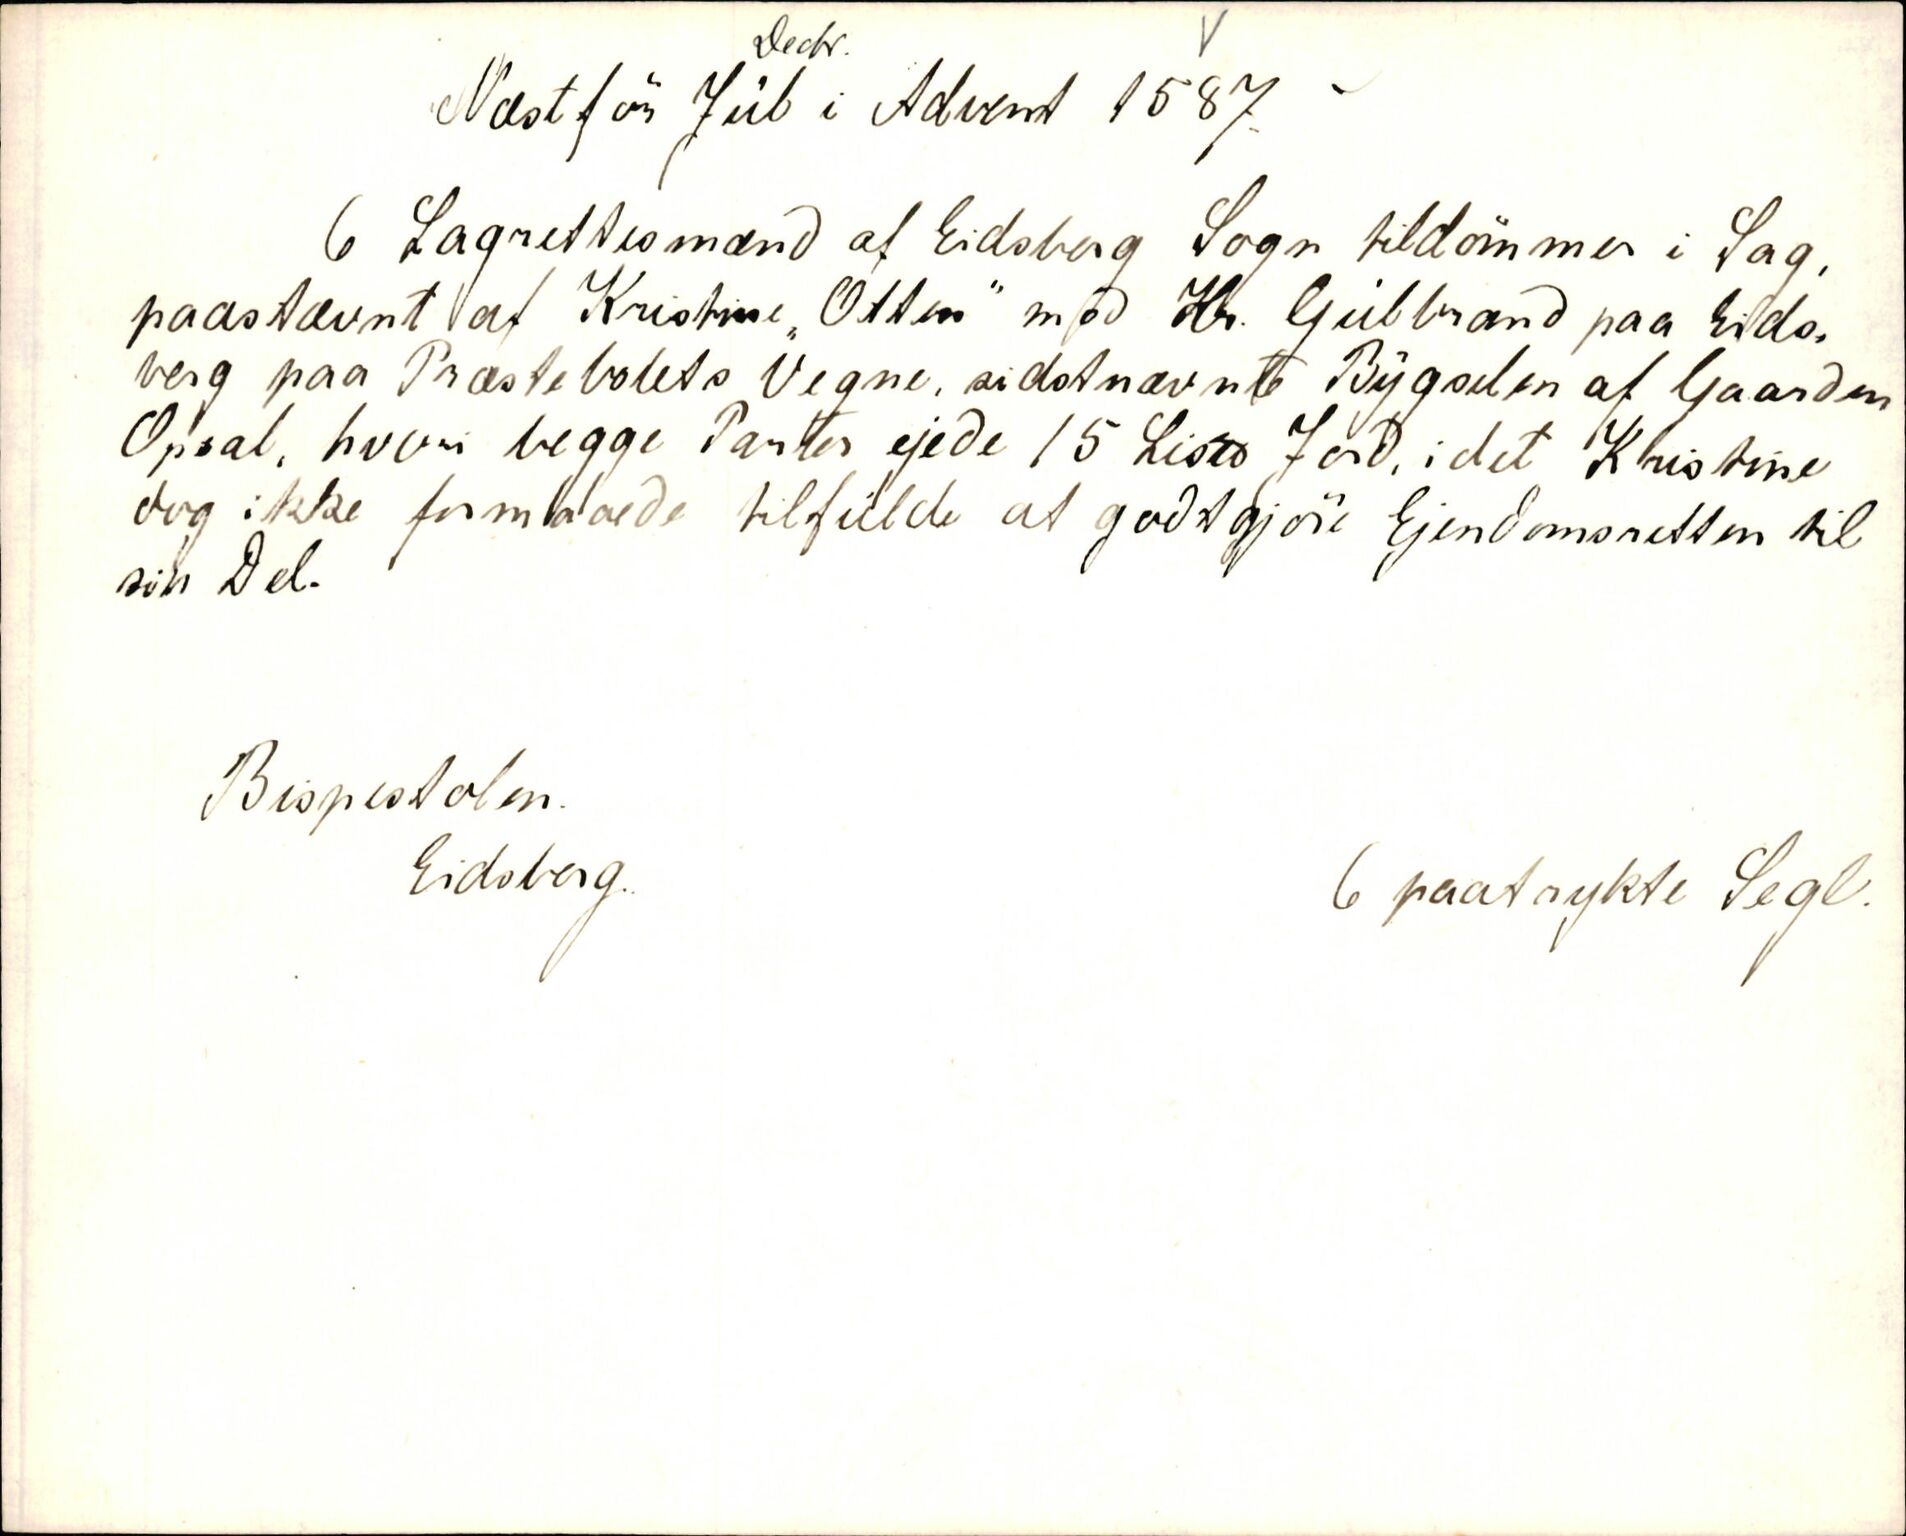 Decbr.
Næstför Jül i Advent 1587
6 Lagrettesmænd af Eidsberg Sogn tildömmer i Sag,
paastævnt af Kristine „Otten" mod Hr. Gülbrand paa Eids-
berg paa Præstebolets Vegne, sidstnævnte Bÿgselen af Gaarden
Opsal, hvori begge Parter ejede 15 Liss Jord, idet Kristine
dog ikke formaaede tilfülde at godtgjöre Ejendomsretten til
sin Del.
Bispestolen.
Eidsberg.
6 paatrykte Segl.